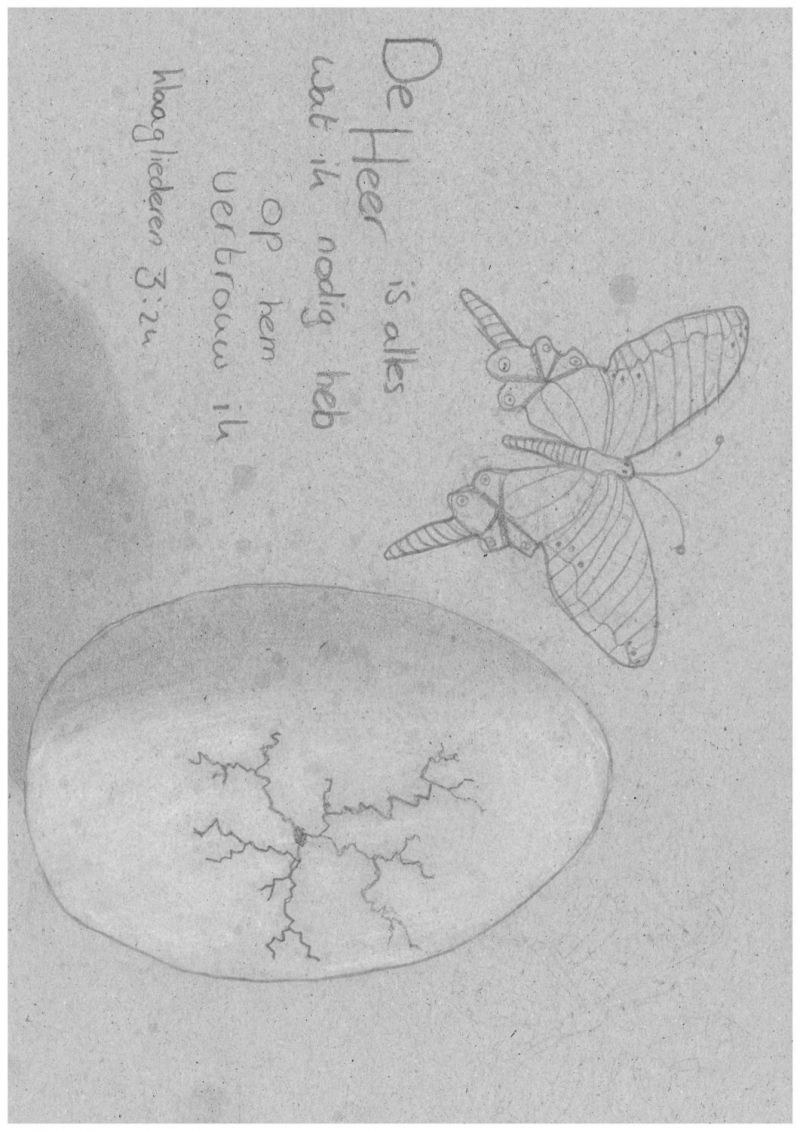 De Heer is alles
wat ik nodig heb
op hem
vertrouw ik
Klaagliederen 3:24